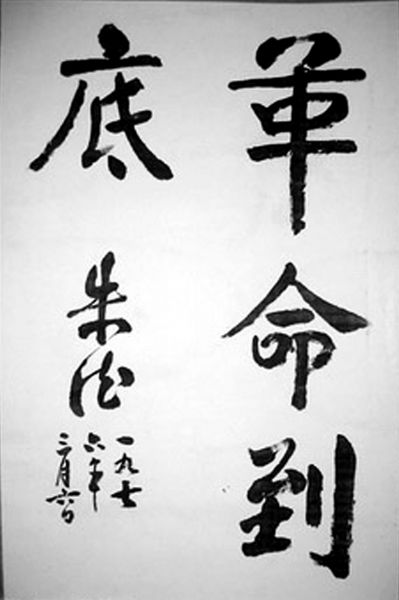 革命到
底
朱德
一九七
六年
三月六日